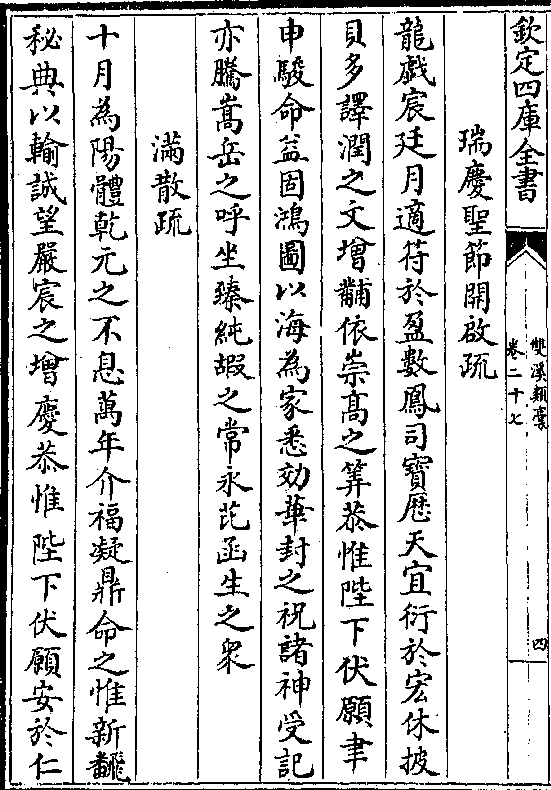 欽定四庫全書
雙溪類稾
卷二十七
四
瑞慶聖節開啟疏
龍戲宸廷月適符於盈數鳳司寶厯天宜衍於宏休披
貝多譯潤之文增黼依崇髙之筭恭惟陛下伏願聿
申駿命益固鴻圖以海為家悉効華封之祝諸神受記
亦騰嵩岳之呼坐臻純嘏之常永芘函生之衆
滿散疏
十月為陽體乾元之不息萬年介福凝鼎命之惟新飜
秘典以輸誠望嚴宸之增慶恭惟陛下伏願安於仁